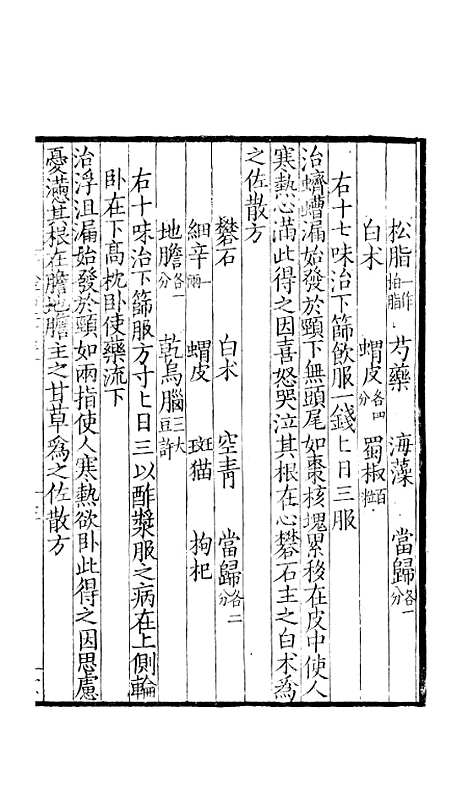 松脂一作柏脂　芍藥　海藻　當歸各一分
白朮　蝟皮各四分　蜀椒百粒
右十七味治下篩飲服一錢匕日三服
治蠐螬漏始發於頸下無頭尾如棗核塊累移在皮中使人
寒熱心滿此得之因喜怒哭泣其根在心礬石主之白朮爲
之佐散方
礬石　白朮　空青　當歸各二分
細辛一兩　蝟皮　斑猫　枸杞
地膽各一分　乾烏腦三大豆許
右十味治下篩服方寸匕日三以酢漿服之病在上側輪
卧在下高枕卧使藥流下
治浮沮漏始發於頸如兩指使人寒熱欲卧此得之因思慮
憂懣其根在膽地膽主之甘草爲之佐散方